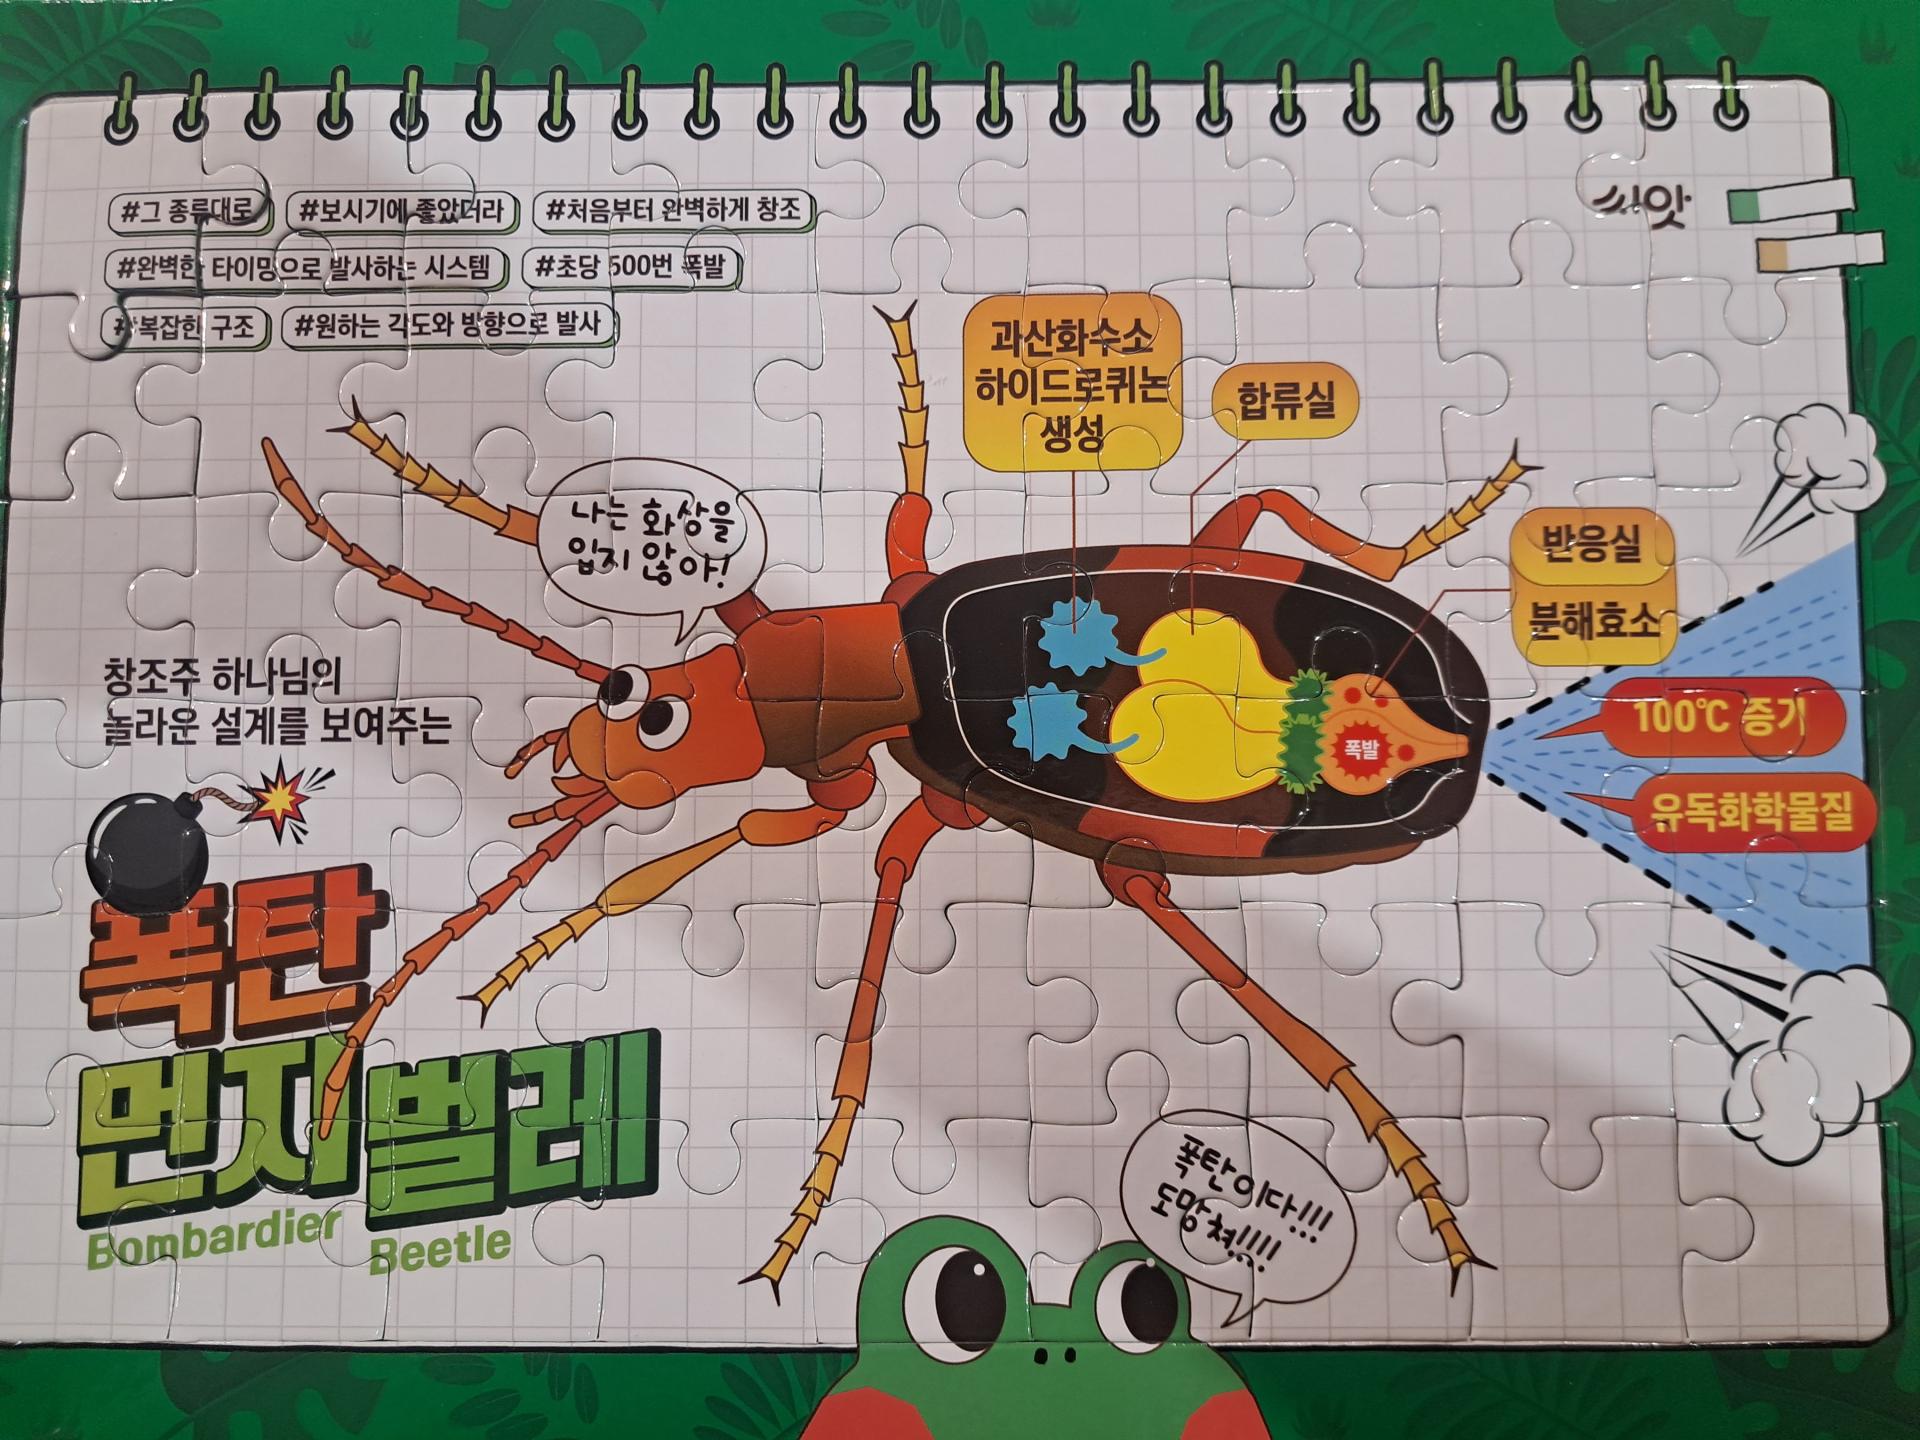 #그 종류대로 #보시기에 좋았더라 #처음부터 완벽하게 창조
#완벽한 타이밍으로 발사하는 시스템 #초당 500번 폭발
#복잡한 구조 #원하는 각도와 방향으로 발사
씨앗
과산화수소
하이드로퀴논
생성
합류실
반응실
분해효소
나는 화상을
입지 않아!
창조주 하나님의
놀라운 설계를 보여주는
폭탄
먼지벌레
Bombardier Beetle
폭발
100℃ 증기
유독화학물질
폭탄이다!!!
도망쳐!!!!